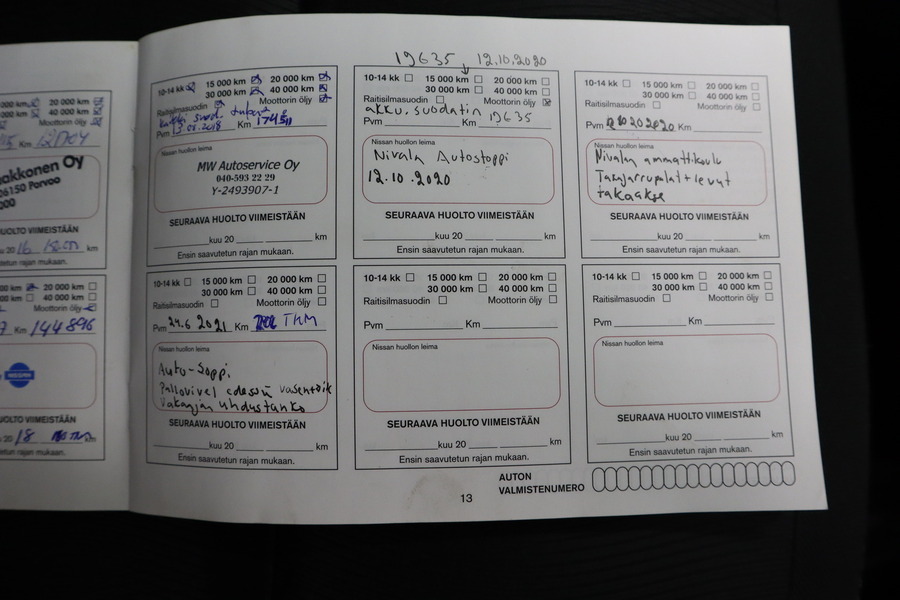 19635 12.10.2020
00 km 20 000 km
40 000 km
Moottorin öljy
Km
akkonen Oy
06150 Porvoo
000
UOLTO VIIMEISTÄÄN
km
tetun rajan mukaan.
20 000 km
40 000 km
Moottorin öljy
Km 144896
UOLTO VIIMEISTÄÄN
20 18 km
tetun rajan mukaan.
10-14 kk 15 000 km 20 000 km
30 000 km 40 000 km
Raitisilmasuodin Moottorin öljy
Pvm Km
Nissan huollon leima
MW Autoservice Oy
040-593 22 29
Y-2493907-1
SEURAAVA HUOLTO VIIMEISTÄÄN
kuu 20 km
Ensin saavutetun rajan mukaan.
10-14 kk 15 000 km 20 000 km
30 000 km 40 000 km
Raitisilmasuodin Moottorin öljy
akku, suodatin
Pvm Km 19635
Nissan huollon leima
Nivala Autostoppi
12.10.2020
SEURAAVA HUOLTO VIIMEISTÄÄN
kuu 20 km
Ensin saavutetun rajan mukaan.
10-14 kk 15 000 km 20 000 km
30 000 km 40 000 km
Raitisilmasuodin Moottorin öljy
Pvm Km
Nissan huollon leima
Nivalan ammattikoulu
Takajarrupalat + levyt
takaakse
SEURAAVA HUOLTO VIIMEISTÄÄN
kuu 20 km
Ensin saavutetun rajan mukaan.
10-14 kk 15 000 km 20 000 km
30 000 km 40 000 km
Raitisilmasuodin Moottorin öljy
Pvm 24.6 2021 Km TKM
Nissan huollon leima
Auto-Soppi
Pallonivel edessä vasen
Vakaajan yhdystanko
SEURAAVA HUOLTO VIIMEISTÄÄN
kuu 20 km
Ensin saavutetun rajan mukaan.
10-14 kk 15 000 km 20 000 km
30 000 km 40 000 km
Raitisilmasuodin Moottorin öljy
Pvm Km
Nissan huollon leima
SEURAAVA HUOLTO VIIMEISTÄÄN
kuu 20 km
Ensin saavutetun rajan mukaan.
10-14 kk 15 000 km 20 000 km
30 000 km 40 000 km
Raitisilmasuodin Moottorin öljy
Pvm Km
Nissan huollon leima
SEURAAVA HUOLTO VIIMEISTÄÄN
kuu 20 km
Ensin saavutetun rajan mukaan.
13
AUTON
VALMISTENUMERO